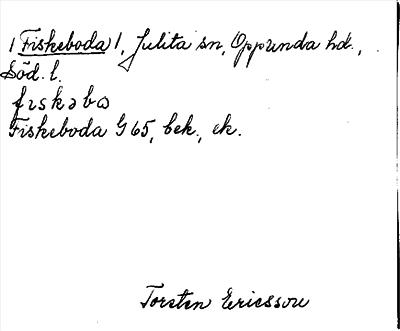 /Fiskeboda/, Julita sn, Oppunda hd.,
Söd. l.
fɪskəbɷ
Fiskeboda G 65, bek., ek.
Torsten Ericsson